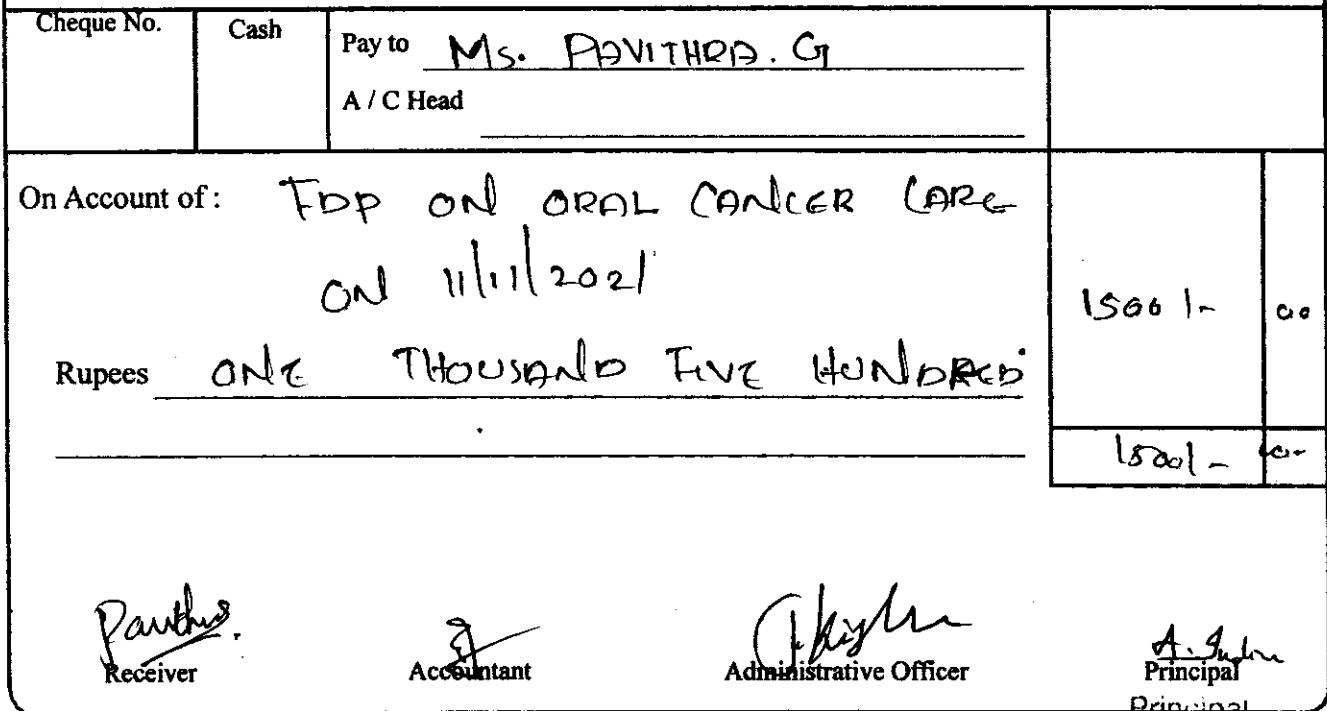 Cheque No. Cash Pay to Ms. PAVITHRA. G
A / C Head
On Account of : FDP ON ORAL CANCER CARE
ON 11/11/2021
1500 /- 00
Rupees ONE THOUSAND FIVE HUNDRED
1500/-
Receiver Accountant Administrative Officer Principal
Principal